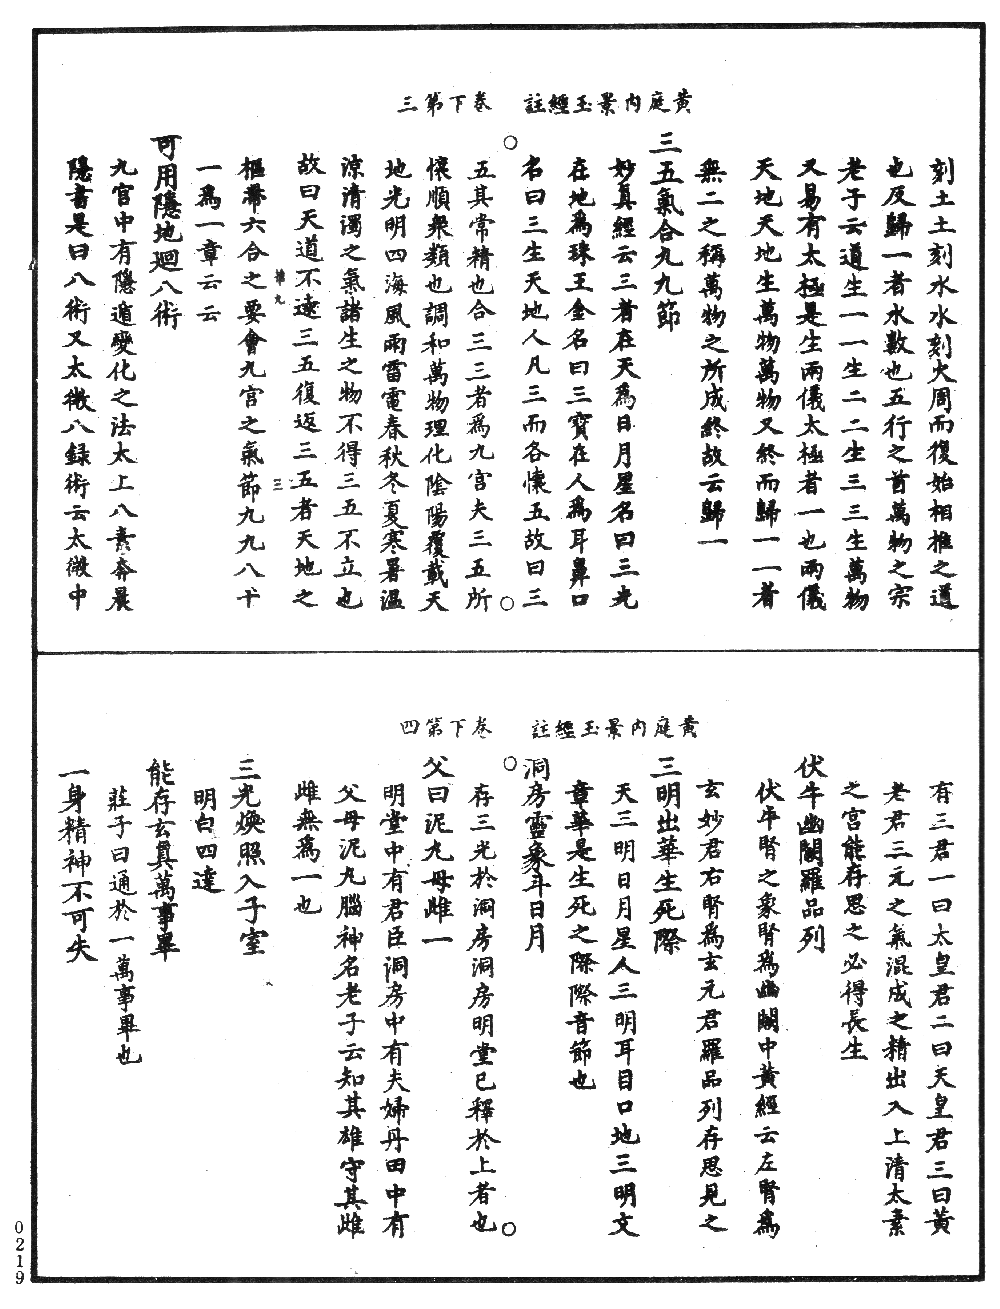 黃庭內景玉經註　卷下第三
刻土土刻水水刻火周而復始相推之道
也反歸一者水數也五行之首萬物之宗
老子云道生一一生二二生三三生萬物
又易有太極是生兩儀太極者一也兩儀
天地天地生萬物萬物又終而歸一一者
無二之稱萬物之所成終故云歸一
三五氣合九九節
妙真經云三者在天為日月星名曰三光
在地為珠玉金名曰三寶在人為耳鼻口
名曰三生天地人凡三而各懷五故曰三
五其常精也合三三者為九宮夫三五所
懷順衆類也調和萬物理化陰陽覆載天
地光明四海風雨雷電春秋冬夏寒暑溫
涼清濁之氣諸生之物不得三五不立也
故曰天道不遠三五復返三五者天地之
樞帶六合之要會九宮之氣節九九八十
一為一章云云
可用隱地廻八術
九宮中有隱遁變化之法太上八素奔晨
隱書是曰八術又太微八錄術云太微中
黃庭內景玉經註　卷下第四
有三君一曰太皇君二曰天皇君三曰黃
老君三元之氣混成之精出入上清太素
之宮能存思之必得長生
伏牛幽闕羅品列
伏牛腎之象腎為幽闕中黃經云左腎為
玄妙君右腎為玄元君羅品列存思見之
三明出華生死際
天三明日月星人三明耳目口地三明文
章華是生死之際際音節也
洞房靈象斗日月
存三光於洞房洞房明堂已釋於上者也
父曰泥丸母雌一
明堂中有君臣洞房中有夫婦丹田中有
父母泥丸腦神名老子云知其雄守其雌
雌無為一也
三光煥照入子室
明白四達
能存玄真萬事畢
莊子曰通於一萬事畢也
一身精神不可失
0219